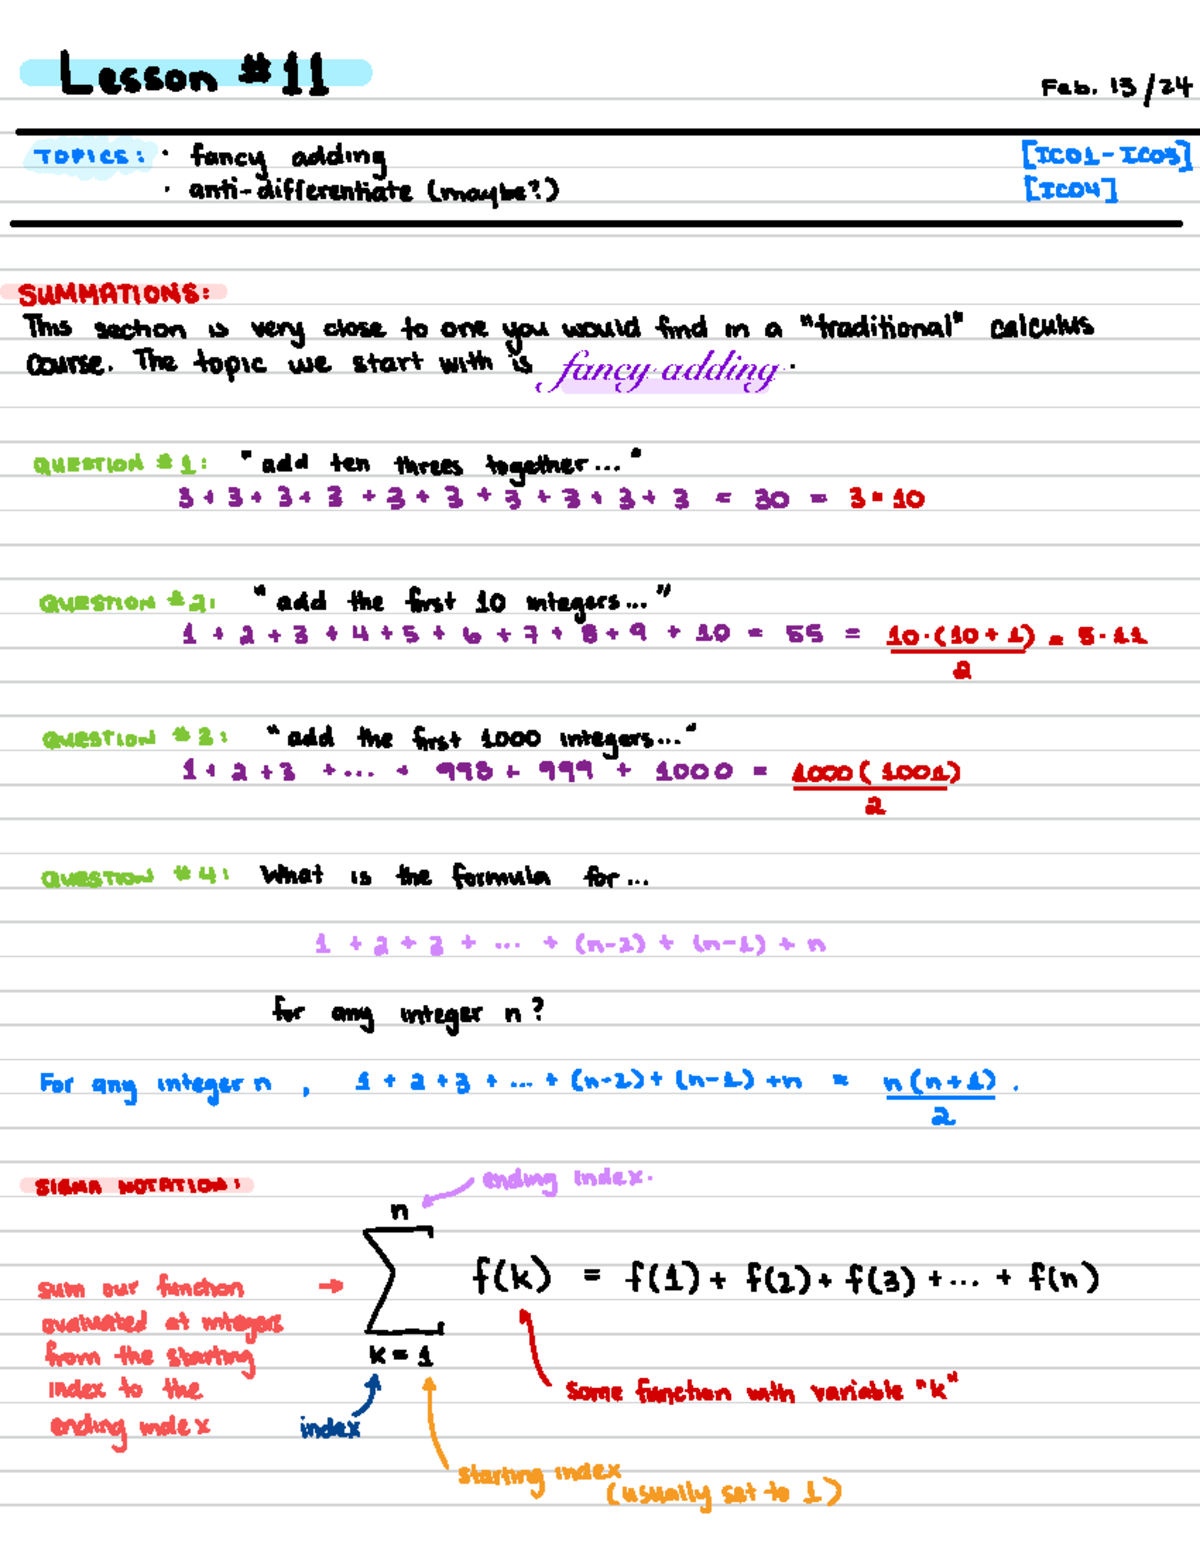 Lesson #11
Feb. 13/24
TOPICS: · fancy adding [IC01-IC03]
· anti-differentiate (maybe?) [IC04]
SUMMATIONS:
This section is very close to one you would find in a "traditional" calculus
course. The topic we start with is fancy adding.
QUESTION #1: "add ten threes together..."
3 + 3 + 3 + 3 + 3 + 3 + 3 + 3 + 3 + 3 = 30 = 3·10
QUESTION #2: "add the first 10 integers..."
1 + 2 + 3 + 4 + 5 + 6 + 7 + 8 + 9 + 10 = 55 = 10·(10+1) = 5·11
2
QUESTION #3: "add the first 1000 integers..."
1 + 2 + 3 + ... + 998 + 999 + 1000 = 1000(1001)
2
QUESTION #4: What is the formula for...
1 + 2 + 3 + ... + (n-2) + (n-1) + n
for any integer n?
For any integer n, 1 + 2 + 3 + ... + (n-2) + (n-1) + n = n(n+1).
2
SIGMA NOTATION:
ending index.
n
∑ f(k) = f(1) + f(2) + f(3) + ... + f(n)
k = 1
sum our function →
evaluated at integers
from the starting
index to the
ending index
some function with variable "k"
index
starting index
(usually set to 1)